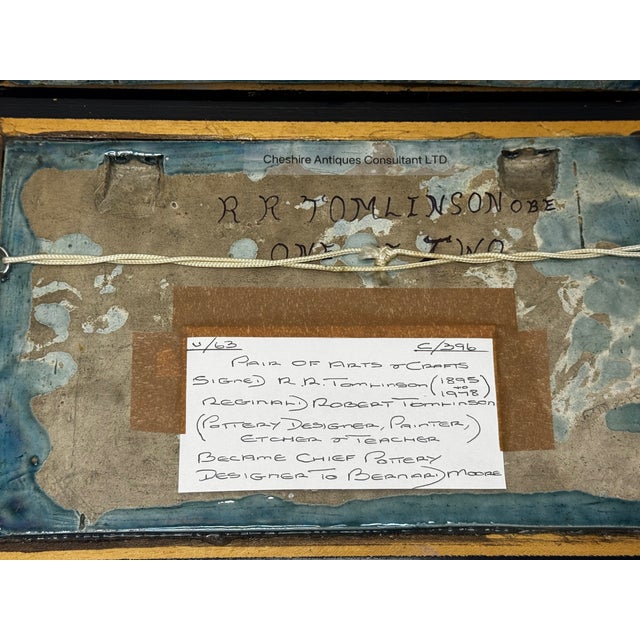 Cheshire Antiques Consultant LTD
R R TOMLINSON OBE
ONE TWO
U/63 C/396
PAIR OF ARTS & CRAFTS
SIGNED R.R. TOMLINSON (1895 to 1978)
REGINALD ROBERT TOMLINSON
(POTTERY DESIGNER, PAINTER,
ETCHER & TEACHER
BECAME CHIEF POTTERY
DESIGNER TO BERNARD MOORE